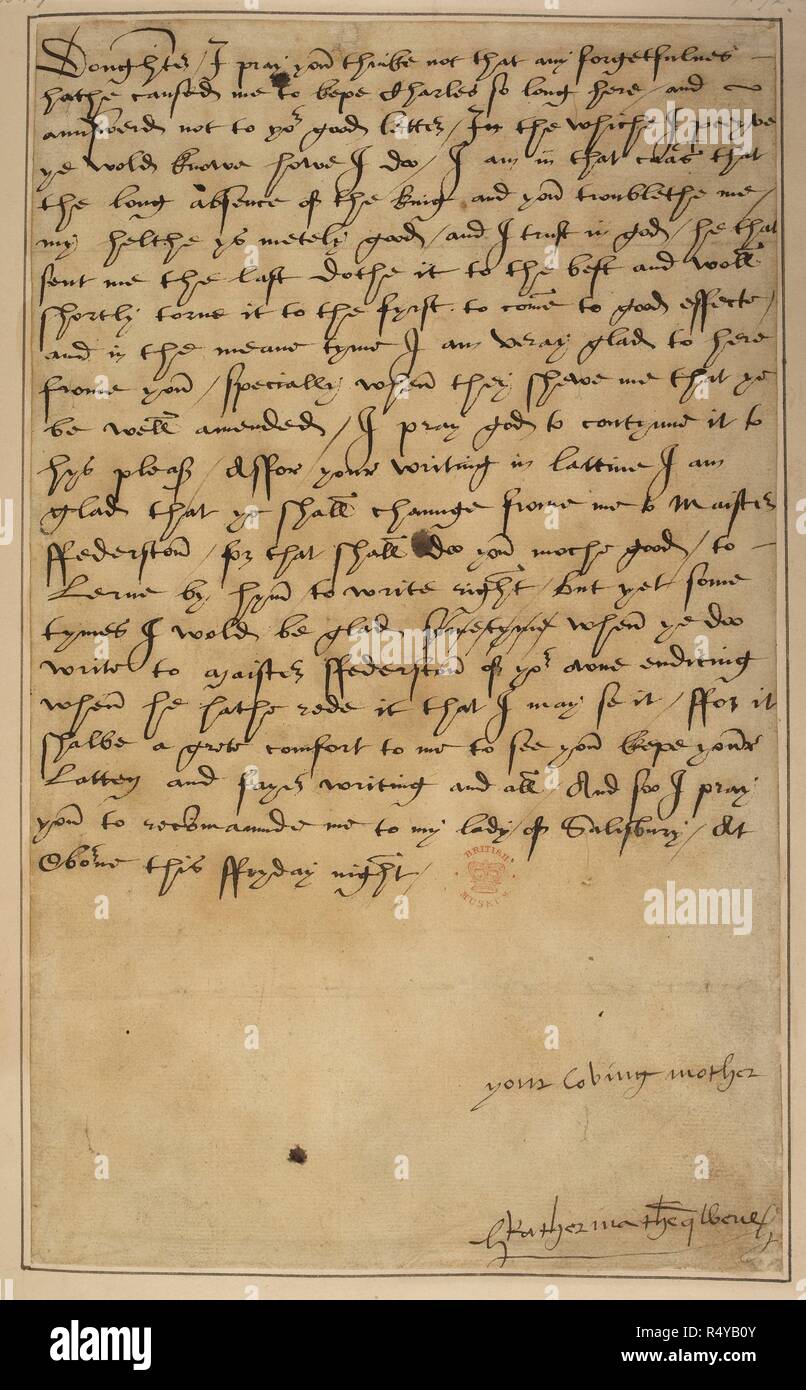 Doughter / I pray you thinke not that any forgetfulnes
hathe caused me to kepe Charles so long here / and
answerd not to yor good letter / In the whiche I perceyve
ye wold knowe howe I doo / I am in that caas that
the long absence of the king and you troublethe me /
my helthe ys metely good / and I trust in god / he that
sent me the last dothe it to the best and woll
shortly torne it to the fyrst to come to good effecte /
and in the meane tyme I am veray glad to here
frome you / specially when they shewe me that ye
be well amended / I pray god to contynue it to
hys pleas / As for your writing in lattine I am
glad that ye shall chaunge frome me to Maister
ffederston / for that shall doo you moche good / to
Lerne by hym to write right / but yet some
tymes I wold be glad sometymes when ye doo
write to Maister ffederston of yor owne enditing
when he hathe rede it that I may se it / ffor it
shalbe a grete comfort to me to see you kepe your
Latten and fayer writing and all / And soo I pray
you to recommaunde me to my lady of Salisbury / At
Oborne this ffryday night /
BRITISH MUSEUM
your loving mother
Katherina the qwene
alamy
Image ID: R4YB0Y
www.alamy.com